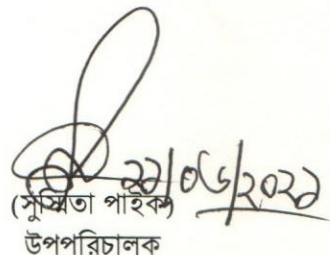 ২২/০৬/২০২১
(সুস্মিতা পাইক)
উপপরিচালক